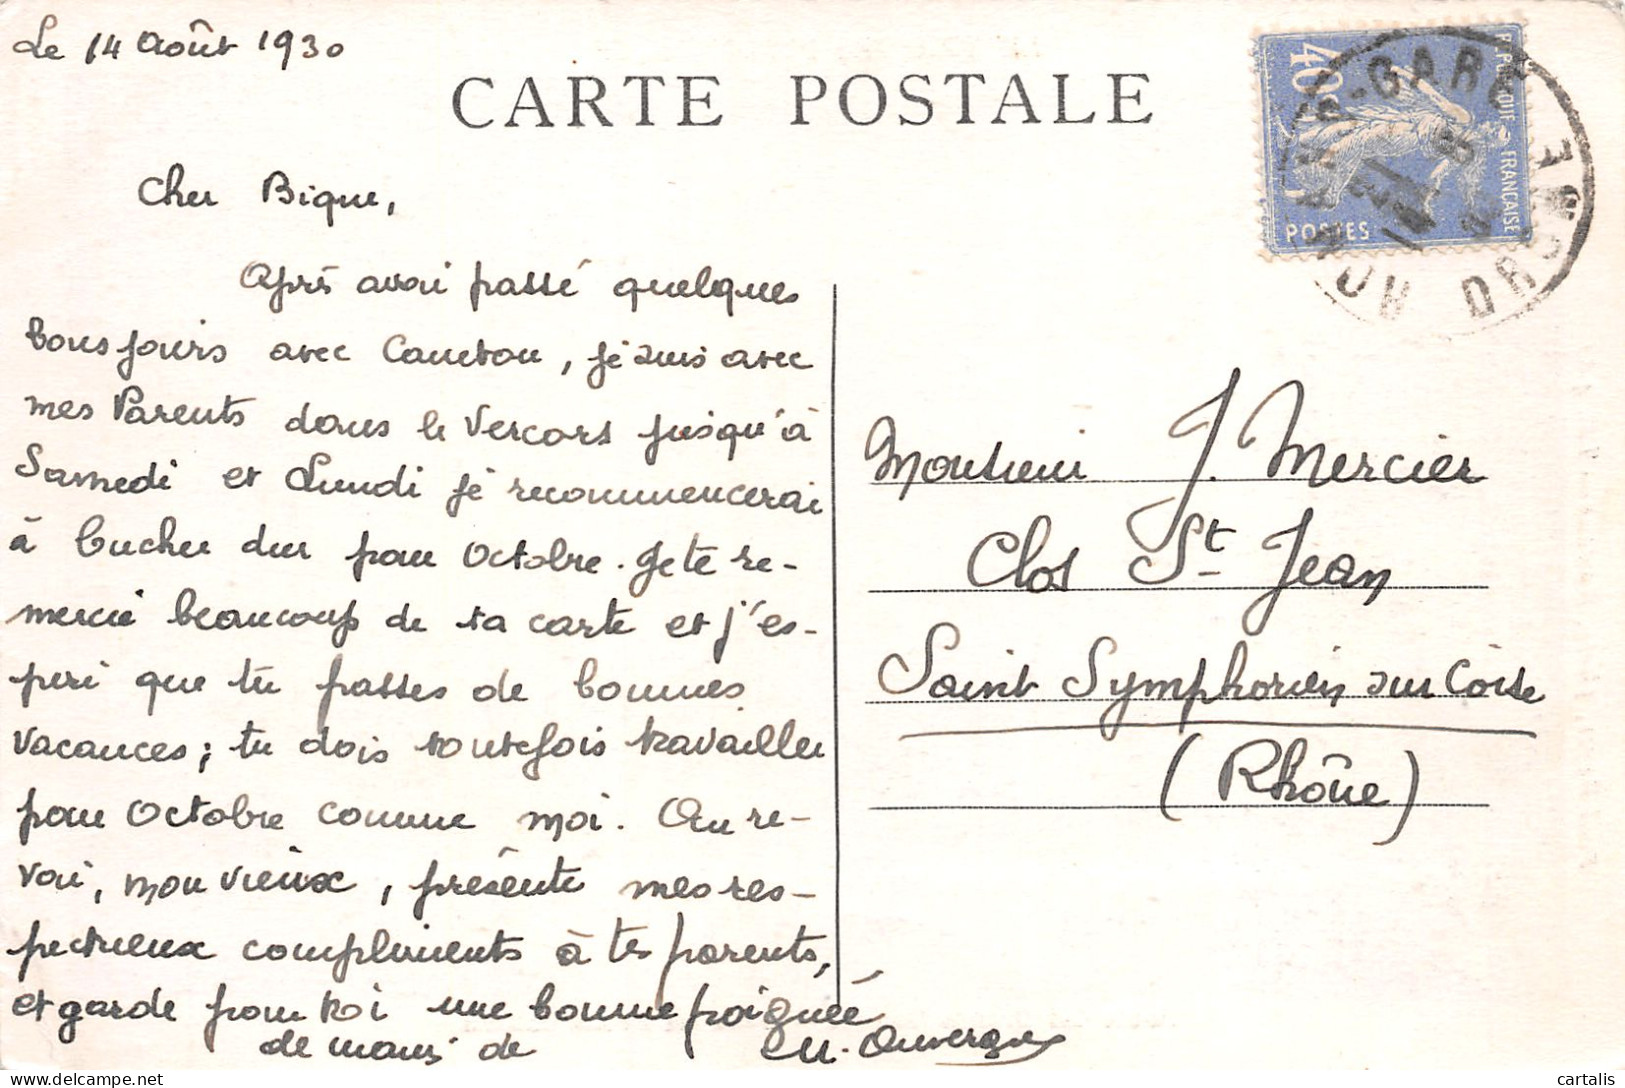 Le 14 Août 1930
CARTE POSTALE
40c
REPUBLIQUE FRANCAISE
POSTES
ROMANS-GARE
DROME
Cher Bique,
Après avoir passé quelques
bons jours avec Caneton, je suis avec
mes Parents dans le Vercors jusqu'à
Samedi et Lundi je recommencerai
à bucher dur pour Octobre. Je te re-
mercie beaucoup de ta carte et j'es-
père que tu passes de bonnes
vacances ; tu dois toutefois travailler
pour Octobre comme moi. Au re-
voir, mon vieux, présente mes res-
pectueux compliments à tes parents,
et garde pour toi une bonne poignée
de mains de M. Auvergne
Monsieur J. Mercier
Clos St Jean
Saint Symphorien sur Coise
(Rhône)
cartalis